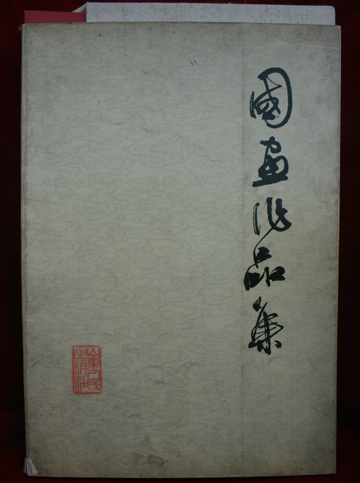 國画作品集